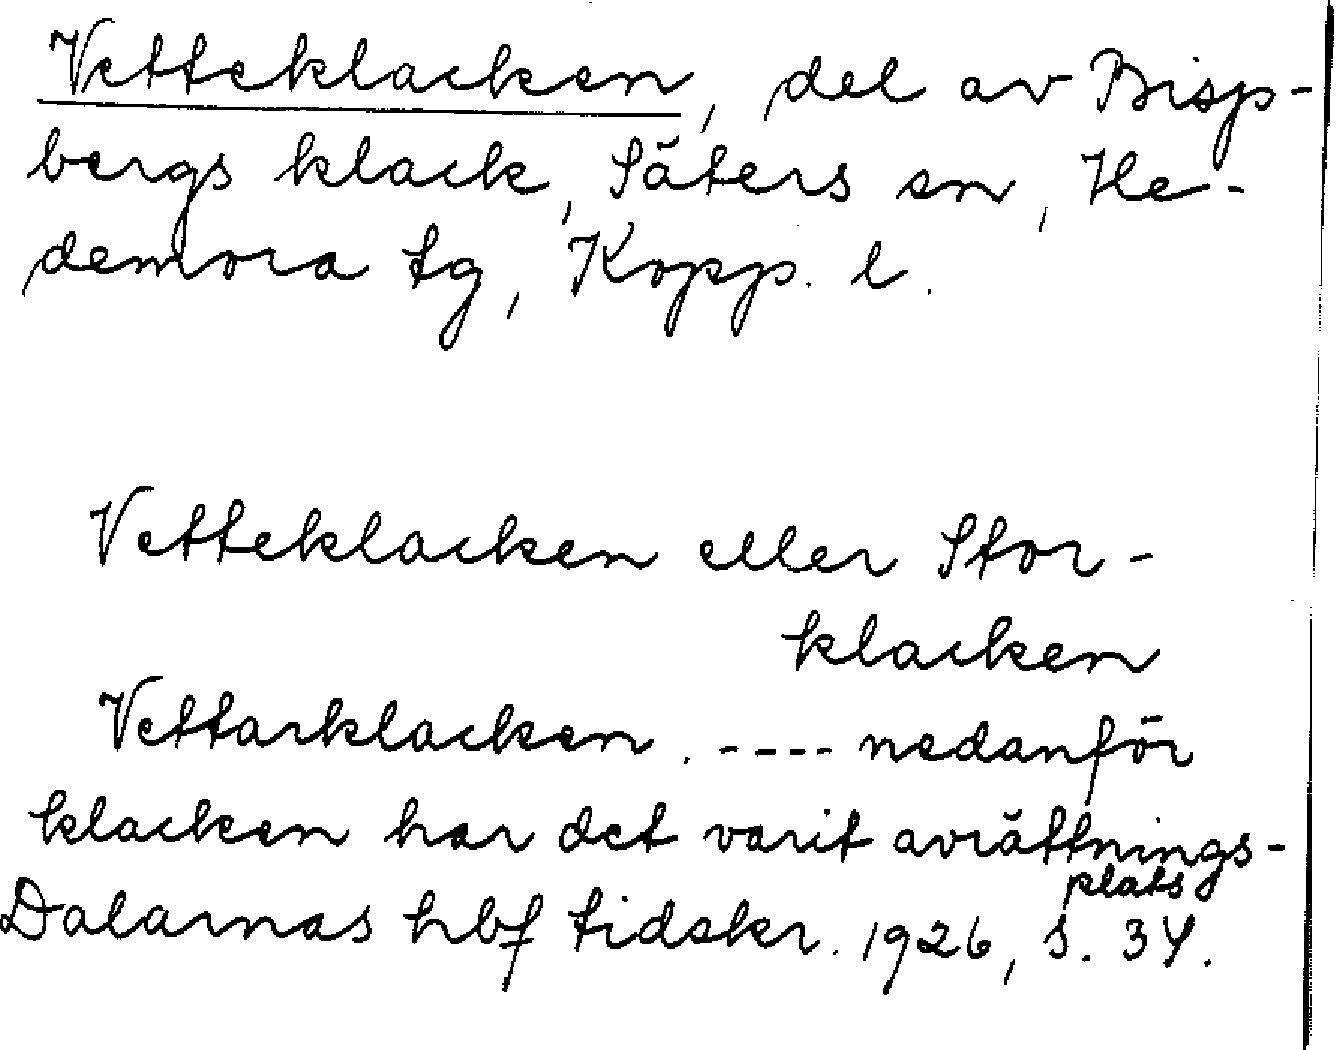 Vetteklacken, del av Bisp-
bergs klack, Säters sn, He-
demora tg, Kopp. l.
Vetteklacken eller Stor-
klacken
Vettarklacken. ---- nedanför
klacken har det varit avrättnings-
plats
Dalarnas hbf tidskr. 1926, s. 34.